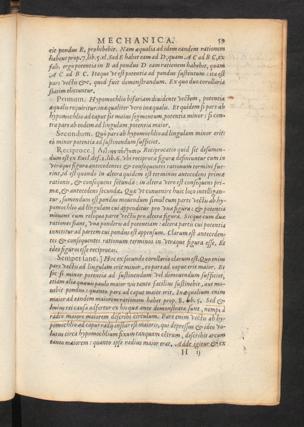 MECHANICA. 59
tis pondus B, prohibebit. Nam æqualia ad idem eandem rationem
habent prop. 7. lib. 5. el. Sed E habet eam ad D, quam A C ad B C, ex
ergo potentia in B ad pondus D eam rationem habebit, quam
A C ad B C. Itaque Ut est potentia ad pondus sustentum ita est
pars vectis &c, quod fuit demonstrandum. Ex quo duo corollaria
statim eliciuntur.
Primum. Hypomochlio bifariam dividente vectem, potentia
æqualis requiritur in æquilibre vero inæqualis. Et quidem si pars ab
hypomochlio ad caput sit maior segmentum potentia minor: si con-
tra pars ab eodem ad lingulam potentia maior.
Secundum. Quò pars ab hypomochlio ad lingulam minor erit:
eò minor potentia ad sustinendum sufficiet.
Reciproce.] Reciprocatio quid sit desumen-
dum est ex Eucl. def. 2. lib. 6. ubi reciproca figura desinuntur cum in
utraque figura antecedentes & consequentes rationum termini fue-
rint, id est quando in altera quidem est terminus antecedens primæ
rationis, & consequens secundæ: in altera vero est consequens pri-
mæ, & antecedens secundæ. Quæ ut convenire huic loco intelligan-
tur, sumendum est pondus movendum simul cum parte vectis ab hy-
pomochlio ad lingulam cui apponitur pro una figura: & potentia
movens cum reliqua parte vectis pro altera figura. Sicque cum duæ
rationes fiant, una ponderis ad potentiam: altera partis cui potentia
innititur ad partem cui pondus est appensum. Clarum est anteceden-
tes & consequentes rationum terminos in utraque figura esse. Et
ideo figuras esse reciprocas.
Semper sane.] Hoc ex secundo corollario clarum est. Quò enim
pars vectis ad lingulam erit minor, eò pars ad caput erit maior. Et
sic si minor potentia ad sustinendum vel demovendum sufficiet,
etiam alia quavis paulò maior vis tantò facilius sustinebit, aut mo-
vebit pondus: quantò pars ad caput maior erit. Inæqualium enim
maior ad eandem maiorem rationem habet prop. 8. lib. 5. Sed &
huius rei causa adfertur ex bisque ante demonstrata sunt, nempe à
radio maiore maiorem describi circulum. Pars enim vectis ab hy-
pomochlio ad caput radij instar est maioris, quo depresso & ideo vo-
lutus circa hypomochlium fixum tanquam centrum, describit arcum
tantò maiorem: quantò ipse radius maior erit. Adde igitur & ex
H ij